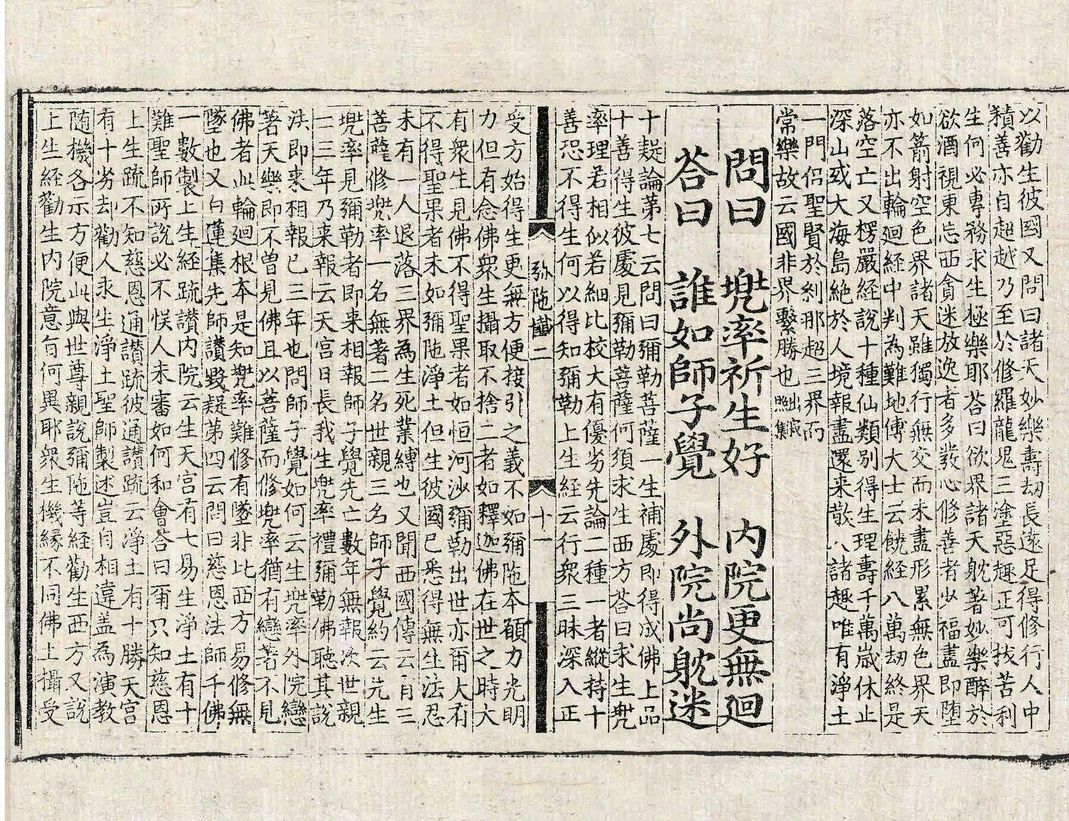 以勸生彼國又問曰諸天妙樂壽劫長遠足得修行人中
積善亦自超越乃至於修羅龍鬼三塗惡趣正可拔苦利
生何必專務求生極樂耶荅曰欲界諸天躭著妙樂醉於
欲酒視東忘西貪迷放逸者多發心修善者少福盡即墮
如箭射空色界諸天雖獨行無交而未盡形累無色界天
亦不出輪廻經中判為難地傅大士云饒經八萬劫終是
落空亡又楞嚴經說十種仙類別得生理壽千萬歲休止
深山或大海島絕於人境報盡還来散入諸趣唯有淨土
一門侶聖賢於刹那超三界而
常樂故云國非界繫勝也
問曰 兠率祈生好 內院更無廻
荅曰 誰如師子覺 外院尚躭迷
十疑論第七云問曰彌勒菩薩一生補處即得成佛上品
十善得生彼處見彌勒菩薩何須求生西方荅曰求生兠
率理若相似若細比校大有優劣先論二種一者縱持十
善恐不得生何以得知彌勒上生經云行衆三昧深入正
弥陁懺二 十一
受方始得生更無方便接引之義不如彌陁本願力光明
力但有念佛衆生攝取不捨二者如釋迦佛在世之時大
有衆生見佛不得聖果者如恒河沙彌勒出世亦爾大有
不得聖果者未如彌陁淨土但生彼國已悉得無生法忍
未有一人退落三界為生死業縛也又聞西國傳云有三
菩薩修兠率一名無著二名世親三名師子覺約云先生
兠率見彌勒者即来相報師子覺先亡數年無報次世親
亡三年乃来報云天宮日長我生兠率禮彌勒佛聽其說
法即来相報已三年也問師子覺如何云生兠率外院戀
著天樂即不曽見佛且以菩薩而修兠率猶有戀著不見
佛者此輪廻根本是知兠率難修有墜非比西方易修無
墜也又白蓮集先師讚毀疑第四云問曰慈恩法師千佛
一數製上生經疏讚內院云生天宮有七易生淨土有十
難聖師所說必不悞人未審如何和會荅曰爾只知慈恩
上生疏不知慈恩通讃疏彼通讃疏云淨土有十勝天宮
有十劣却勸人求生淨土聖師製述豈自相違盖為演教
隨機各示方便此與世尊親說彌陁等經勸生西方又說
上生經勸生內院意旨何異耶衆生機緣不同佛上攝受